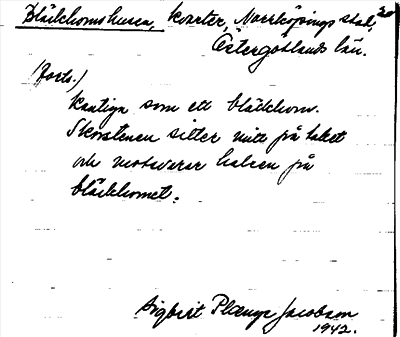 Bläckhornshusen, kvarter, Norrköpings stad,
Östergötlands län.
(forts.)
kantiga som ett bläckhorn.
Skorstenen sitter mitt på taket
och motsvarar halsen på
bläckhornet.
Sigbrit Plænge Jacobson
1942.